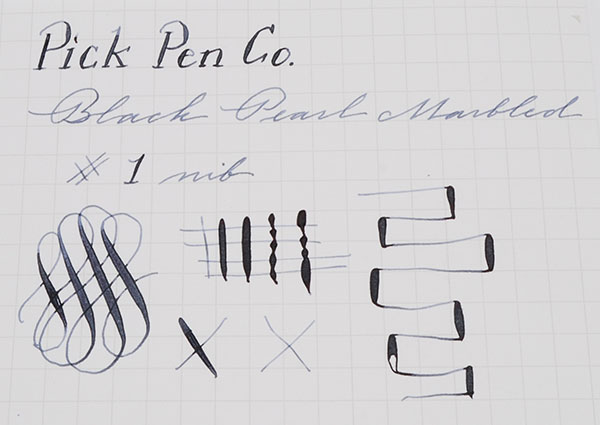 Pick Pen Co.
Black Pearl Marbled
# 1 nib